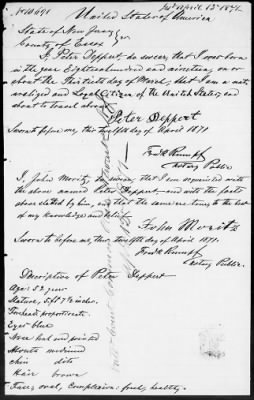 No 10691 Isd April 13th 1871.
United States of America
State of New Jersey } ss
County of Essex
I, Peter Deppert, do swear, that I was born
in the year Eighteen hundred and nineteen, on or
about the Thirtieth day of March; that I am a nat-
uralized and Legal Citizen of the United States, and
about to travel abroad
Peter Deppert
Sworn to before me, this twelfth day of April 1871
Fredk Rumpf
Notary Public
I, John Moritz, do swear, that I am acquainted with
the above named Peter Deppert, and with the facts
above stated by him, and that the same are true, to the best
of my knowledge and belief.
John Moritz
Sworn to before me this twelfth day of April 1871.
Fredk Rumpf
Notary Public.
Description of Peter Deppert
Age: 52 year
Stature, 5 ft 7 1/2 inches.
Forehead, proportionate.
Eyes blue
Nose and
Mouth medium
chin dito
Hair brown
Face, oval, Complexion: fresh, healthy.